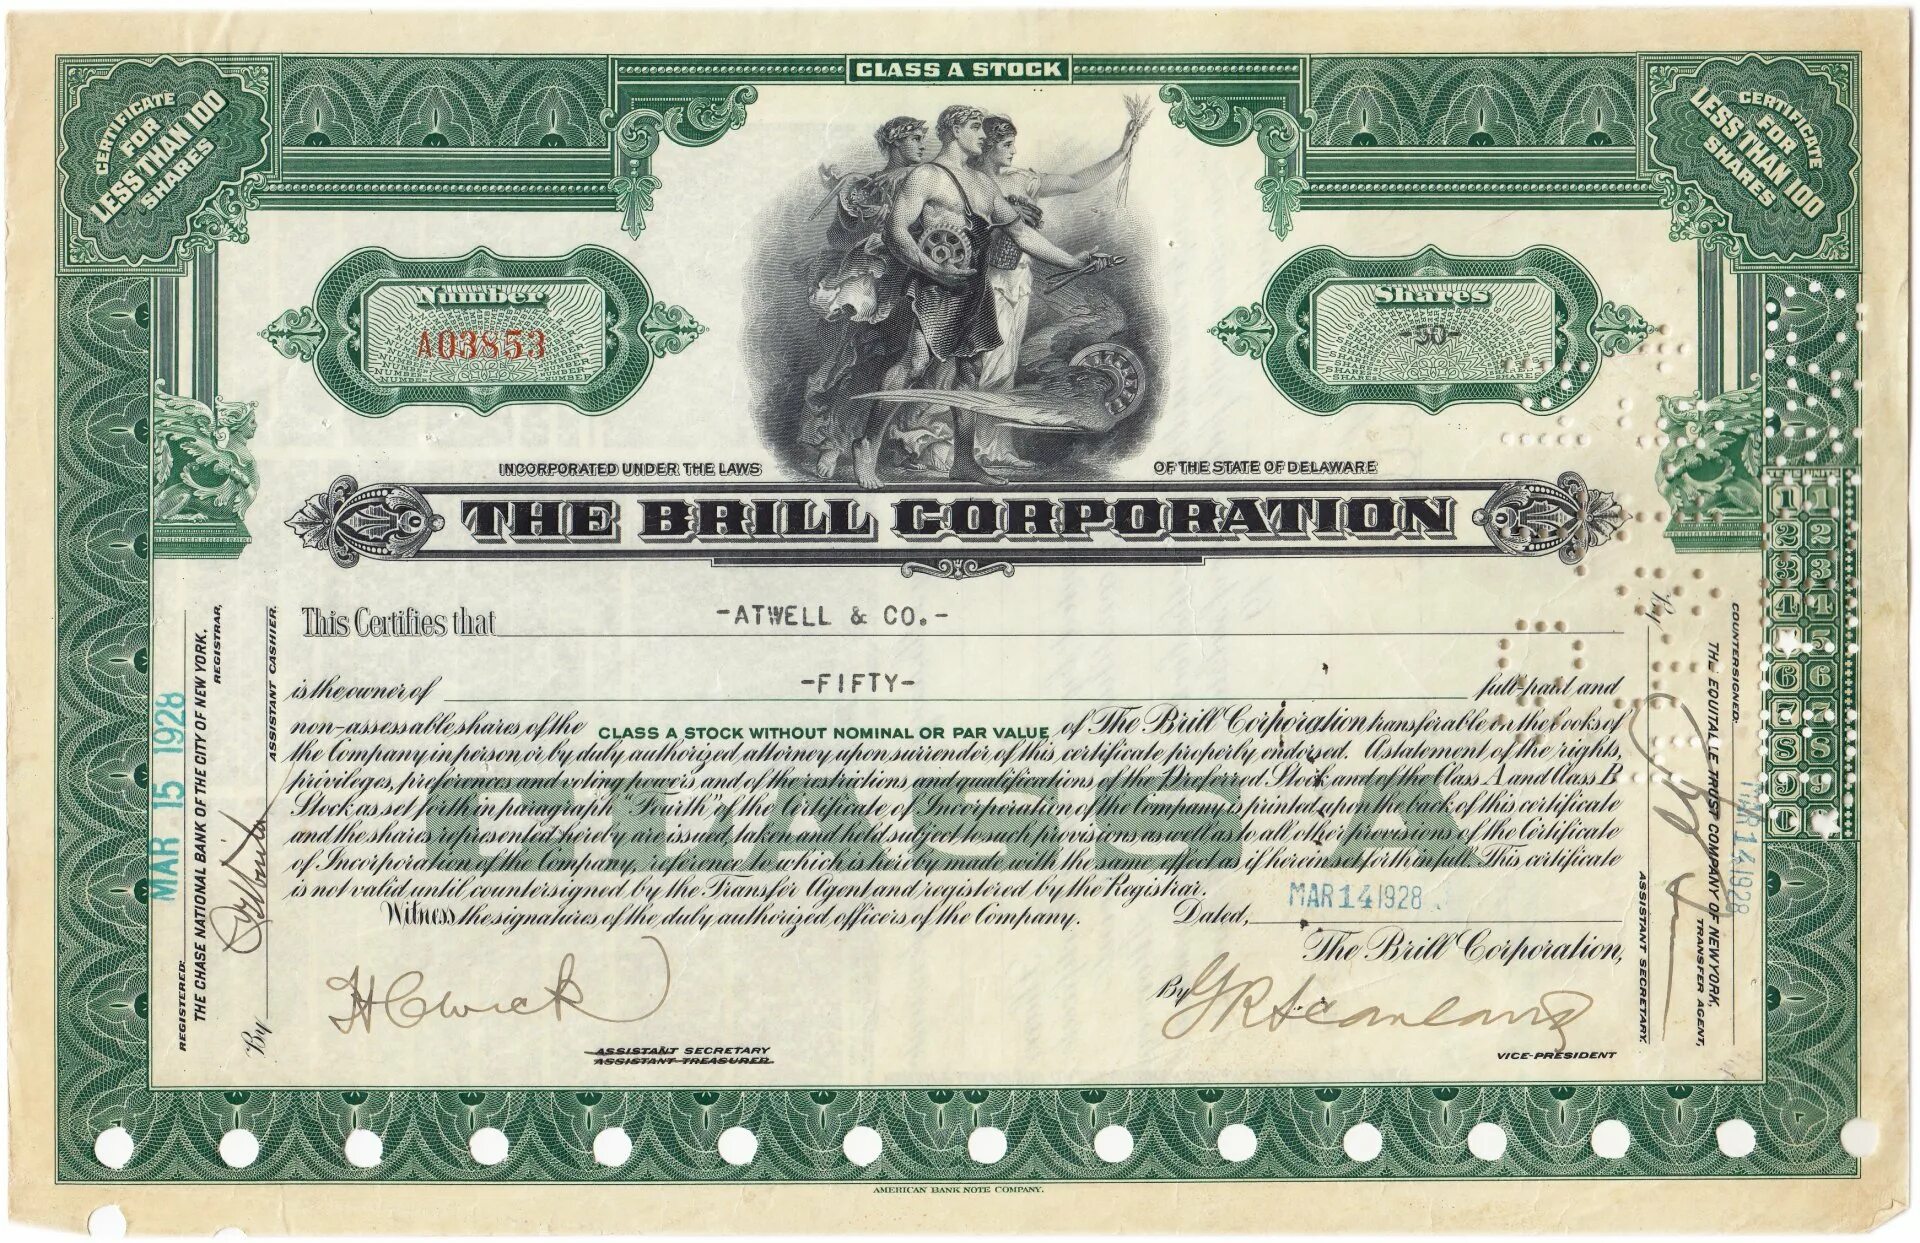 CLASS A STOCK
CERTIFICATE
FOR
LESS THAN 100
SHARES
CERTIFICATE
FOR
LESS THAN 100
SHARES
Number
A03853
Shares
-50-
INCORPORATED UNDER THE LAWS
OF THE STATE OF DELAWARE
THE BRILL CORPORATION
This Certifies that -ATWELL & CO.-
is the owner of -FIFTY- full-paid and
non-assessable shares of the CLASS A STOCK WITHOUT NOMINAL OR PAR VALUE of The Brill Corporation transferable on the books of
the Company in person or by duly authorized attorney upon surrender of this certificate properly endorsed. A statement of the rights,
privileges, preferences and voting powers and of the restrictions and qualifications of the Preferred Stock and of the Class A and Class B
Stock as set forth in paragraph "Fourth" of the Certificate of Incorporation of the Company is printed upon the back of this certificate
and the shares represented hereby are issued, taken and held subject to such provisions, as well as to all other provisions of the Certificate
of Incorporation of the Company, reference to which is hereby made with the same effect as if herein set forth in full. This certificate
is not valid until countersigned by the Transfer Agent and registered by the Registrar.
CLASS A
Witness the signatures of the duly authorized officers of the Company. Dated, MAR 14 1928
The Brill Corporation,
By
ASSISTANT SECRETARY
ASSISTANT TREASURER
VICE-PRESIDENT
MAR 15 1928
REGISTERED:
THE CHASE NATIONAL BANK OF THE CITY OF NEW YORK,
REGISTRAR,
By
ASSISTANT CASHIER.
COUNTERSIGNED:
THE EQUITABLE TRUST COMPANY OF NEW YORK,
TRANSFER AGENT,
By
ASSISTANT SECRETARY.
MAR 14 1928
TENS UNITS
1 1
2 2
3 3
4 4
5
6 6
7 7
8 8
9 9
0
AMERICAN BANK NOTE COMPANY.